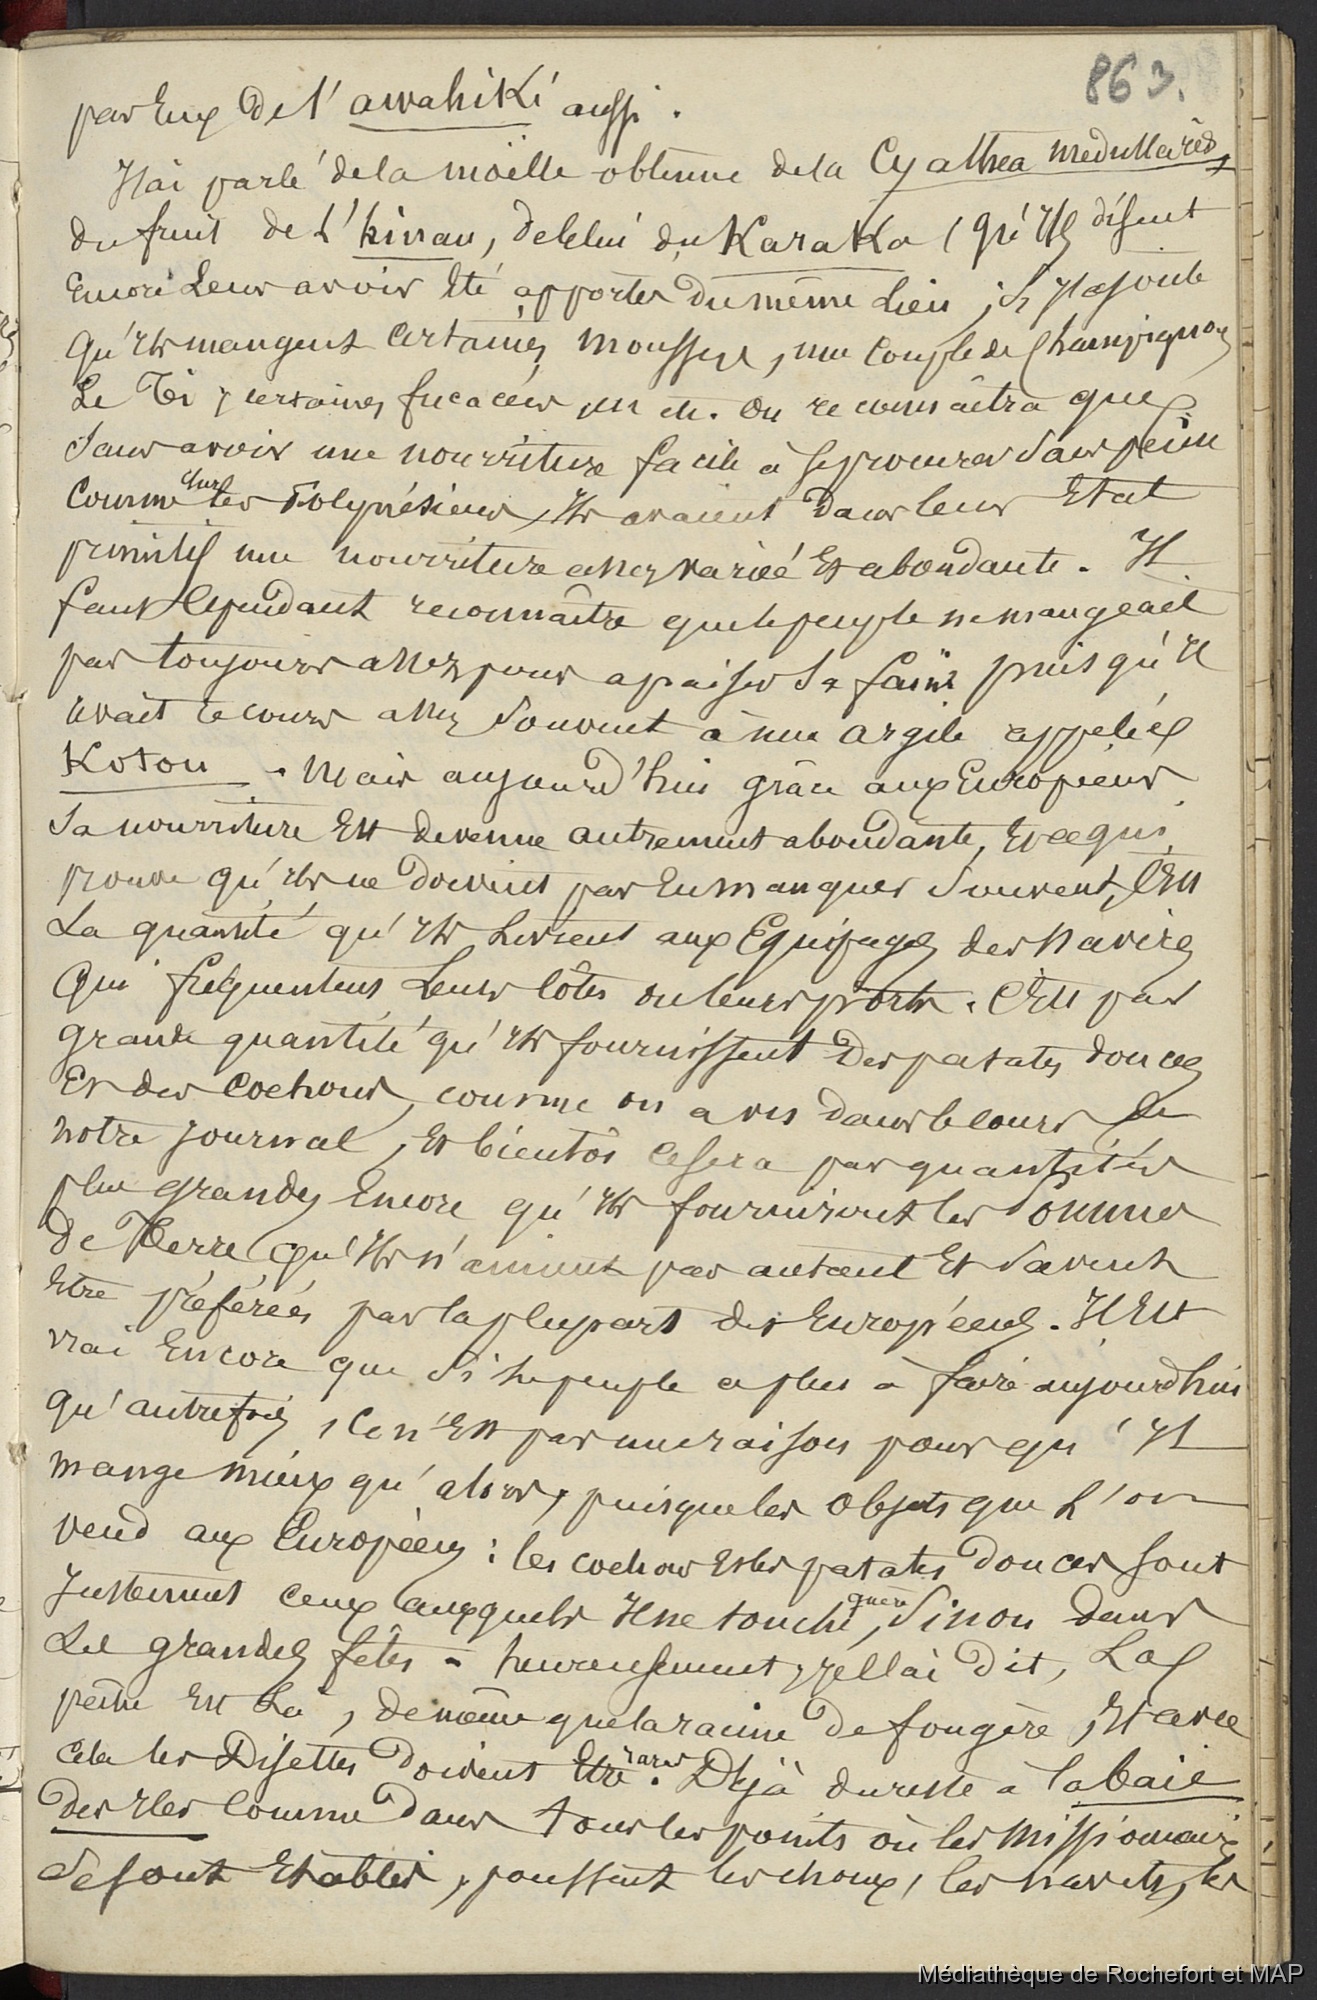 863.
par Eux de l'awahiki aussi.
J'ai parlé de la moëlle obtenue de la Cyathea medullaires,
du fruit de l'hinau, de celui du Karaka (qu'Ils disent
Encore Leur avoir Eté apportés du même Lieu ; si J'ajoute
qu'Ils mangent certaines mousses, une couple de champignons
Le Ti, certaines fucacées, on
reconnaîtra que
Sans avoir une nourriture facile à se procurer sans peine
comme chez les Polynésiens, Ils avaient dans leur Etat
primitif une nourriture assez variée Et abondante. Il
faut cependant reconnaître que le peuple ne mangeait
pas toujours assez pour apaiser sa faim puisqu'il
avait recours assez souvent à une argile appelée
Kotou. Mais aujourd'hui grâce aux Européens
Sa nourriture Est devenue autrement abondante, Et ce qui
prouve qu'ils ne doivent pas En manquer souvent, C'Est
La quantité qu'Ils Livrent aux Equipages des navires
qui fréquentent Leurs Côtes ou leurs ports. C'Est par
grande quantité qu'Ils fournissent des patates douces
Et des cochons, comme on a vu dans le cours de
notre journal, Et bientôt ce sera par quantités
plus grandes Encore qu'Ils fourniront les Pommes
de Terre qu'Ils n'aiment pas autant Et savent
Etre préférées par la plupart des Européens. Il Est
vrai Encore que si le peuple a plus à faire aujourd'hui
qu'autrefois, Ce n'Est pas une raison pour qu'Il
mange mieux qu'alors, puisque les objets que L'on
vend aux Européens : les cochons Et les patates douces sont
Justement ceux auxquels Il ne touche guère, Sinon dans
Les grandes fêtes - heureusement, je l'ai dit, La
pêche Est Là, de même que la racine de fougère, Et avec
cela les Disettes doivent Etre rares. Déjà du reste à la baie
des Iles comme dans tous les points où les missionnaires
se sont Etablis, poussent les choux, les navets, les
Médiathèque de Rochefort et MAP